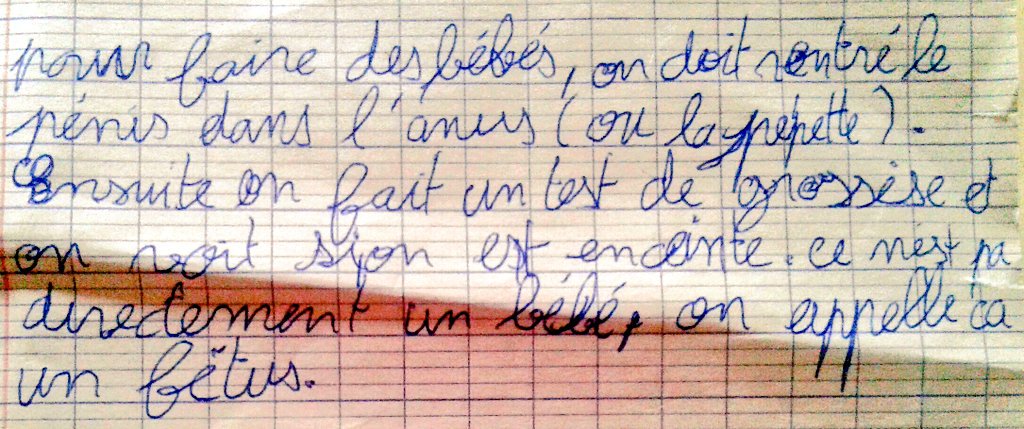 pour faire des bébés, on doit rentré le
pénis dans l'anus (ou la pepette).
ensuite on fait un test de grossése et
on voit si on est enceinte. ce n'est pa
directement un bébé, on appelle ca
un fëtus.